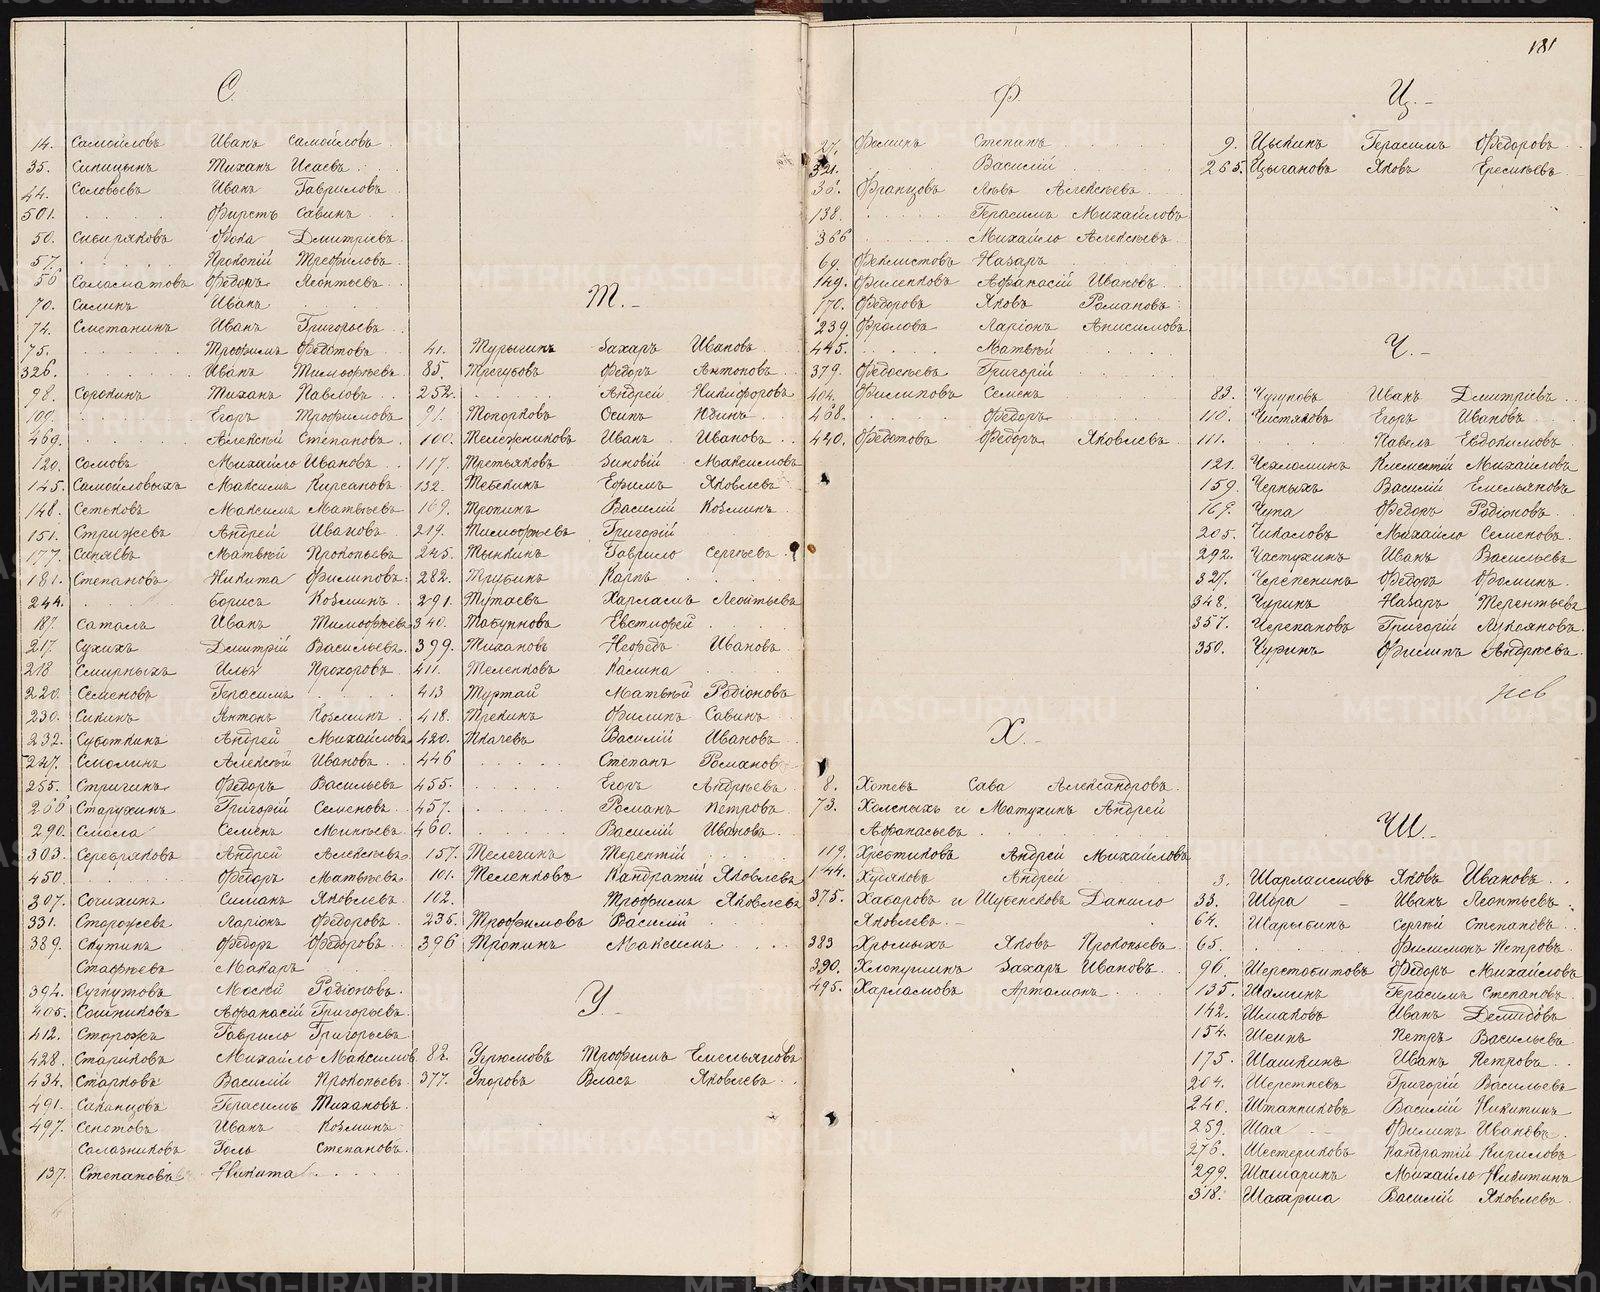 181
С.
14. Самойловъ Иванъ Самойловъ
35. Синицынъ Тиханъ Исаевъ
44. Соловьевъ Иванъ Гавриловъ
501. Фирстъ Савинъ
50. Сибиряковъ Фока Дмитріевъ
57. Прокопій Трефиловъ
56 Саламатовъ Федоръ Леонтьевъ
70. Салинъ Иванъ
74. Сметанинъ Иванъ Григорьевъ
75. Трофимъ Федотовъ
326. Иванъ Тимофѣевъ
98. Сорокинъ Тиханъ Павловъ
109. Егоръ Трофимовъ
469. Алексѣй Степановъ
120. Сомовъ Михайло Ивановъ
145. Самойловыхъ Максимъ Кирсановъ
148. Сетьковъ Максимъ Матвѣевъ
151. Стрижевъ Андрей Ивановъ
177. Синяевъ Матвѣй Прокопьевъ
181. Степановъ Никита Филиповъ
244. Борисъ Козминъ
187. Саталъ Иванъ Тимофѣевъ
217. Сухихъ Дмитрій Васильевъ
218 Смирныхъ Илья Прохоровъ
220. Семеновъ Герасимъ
230. Сикинъ Антонъ Козминъ
232. Суботкинъ Андрей Михайловъ
247. Смолинъ Алексѣй Ивановъ
255. Стригинъ Федоръ Васильевъ
266 Старухинъ Григорій Семеновъ
290. Смола Семенъ Минѣевъ
303. Серебряковъ Андрей Алексѣевъ
450. Федоръ Матвѣевъ
307. Сочихинъ Симанъ Яковлевъ
331. Сторожевъ Ларіонъ Федоровъ
389. Скутинъ Федоръ Федоровъ
Стафѣевъ Макаръ
394. Сугнутовъ Мосѣй Родіоновъ
405. Сошниковъ Афанасій Григорьевъ
412. Сторожъ Гаврило Григорьевъ
428. Стариковъ Михайло Максимов
434. Старковъ Василій Прокопьевъ
491. Саканцовъ Герасимъ Тихановъ
497. Сенотовъ Иванъ Козминъ
Салазниковъ Голь Степановъ
137. Степановъ Никита
Т.
41. Турыгинъ Захаръ Ивановъ
85. Трегубовъ Федоръ Антоновъ
252. Андрей Никифоровъ
91. Топорковъ Осипъ Юдинъ
100. Тележниковъ Иванъ Ивановъ
117. Третьяковъ Зиновій Максимовъ
132. Тебекинъ Ефимъ Яковлевъ
169. Тропинъ Василій Козминъ
219. Тимофѣевъ Григорій
245. Тынкинъ Гаврило Сергѣевъ
282. Трубинъ Карпъ
291. Тутаевъ Харламъ Леонтьевъ
340. Табунновъ Евстифей
399. Тихановъ Нефедъ Ивановъ
411. Теленковъ Калина
413 Туртай Матвѣй Родіоновъ
418. Трекинъ Филипъ Савинъ
420. Ткачевъ Василій Ивановъ
446 Степанъ Романовъ
455. Егоръ Андрѣевъ
457. Романъ Петровъ
460. Василій Ивановъ
157. Телегинъ Терентій
101. Теленковъ Кандратій Яковлевъ
102. Трофимъ Яковлевъ
236. Трофимовъ Василій
396 Тропинъ Максимъ
У.
82. Угрюмовъ Трофимъ Емельяновъ
377. Упоровъ Власъ Яковлевъ
Ф.
27. Фоминъ Степанъ
321. Василій
36. Францовъ Львъ Алексѣевъ
138. Герасимъ Михайловъ
366 Михайло Алексѣевъ
69. Феклистовъ Назаръ
149. Филенковъ Афанасій Ивановъ
170. Федоровъ Яковъ Романовъ
239. Фроловъ Ларіонъ Анисимовъ
445. Матвѣй
379. Федосѣевъ Григорій
404. Филиповъ Семенъ
468. Федоръ
420. Федотовъ Федоръ Яковлевъ
Х.
8. Хотевъ Сава Александровъ
73. Холсныхъ и Матухинъ Андрей
Афанасьевъ
119. Хрестиковъ Андрей Михайловъ
144. Худяковъ Андрей
375. Хабаровъ и Шубенковъ Данило
Яковлевъ
383 Хромыхъ Яковъ Прокопьевъ
390. Хлопушинъ Захаръ Ивановъ
495. Харламовъ Артамонъ
Ц.
9. Цыкинъ Герасимъ Федоровъ
265. Цыгановъ Яковъ Еремѣевъ
Ч.
83. Чугуновъ Иванъ Дмитріевъ
110. Чистяковъ Егоръ Ивановъ
111. Павелъ Евдокимовъ
121. Чехломинъ Климентій Михайловъ
159. Черныхъ Василій Емельяновъ
169. Чупа Федоръ Родіоновъ
205. Чикаловъ Михайло Семеновъ
292. Частухинъ Иванъ Васильевъ
327. Черепенинъ Федоръ Фоминъ
348. Чуринъ Назаръ Терентьевъ
357. Черепановъ Григорій Лукояновъ
350. Чуринъ Филипъ Андрѣевъ
Ш.
3. Шарламовъ Яковъ Ивановъ
33. Шара Иванъ Леонтьевъ
64. Шарыбинъ Сергѣй Степановъ
65. Филимонъ Петровъ
96. Шерстобитовъ Федоръ Михайловъ
135. Шаминъ Герасимъ Степановъ
142. Шмаковъ Иванъ Демидовъ
154. Шеинъ Петръ Васильевъ
175. Шашкинъ Иванъ Петровъ
204. Шеретневъ Григорій Васильевъ
240. Штанниковъ Василій Никитинъ
259. Шая Филипъ Ивановъ
276. Шестериковъ Кандратій Кириловъ
299. Шамаринъ Михайло Никитинъ
318. Шатрша Василій Яковлевъ
METRIKI.GASO-URAL.RU